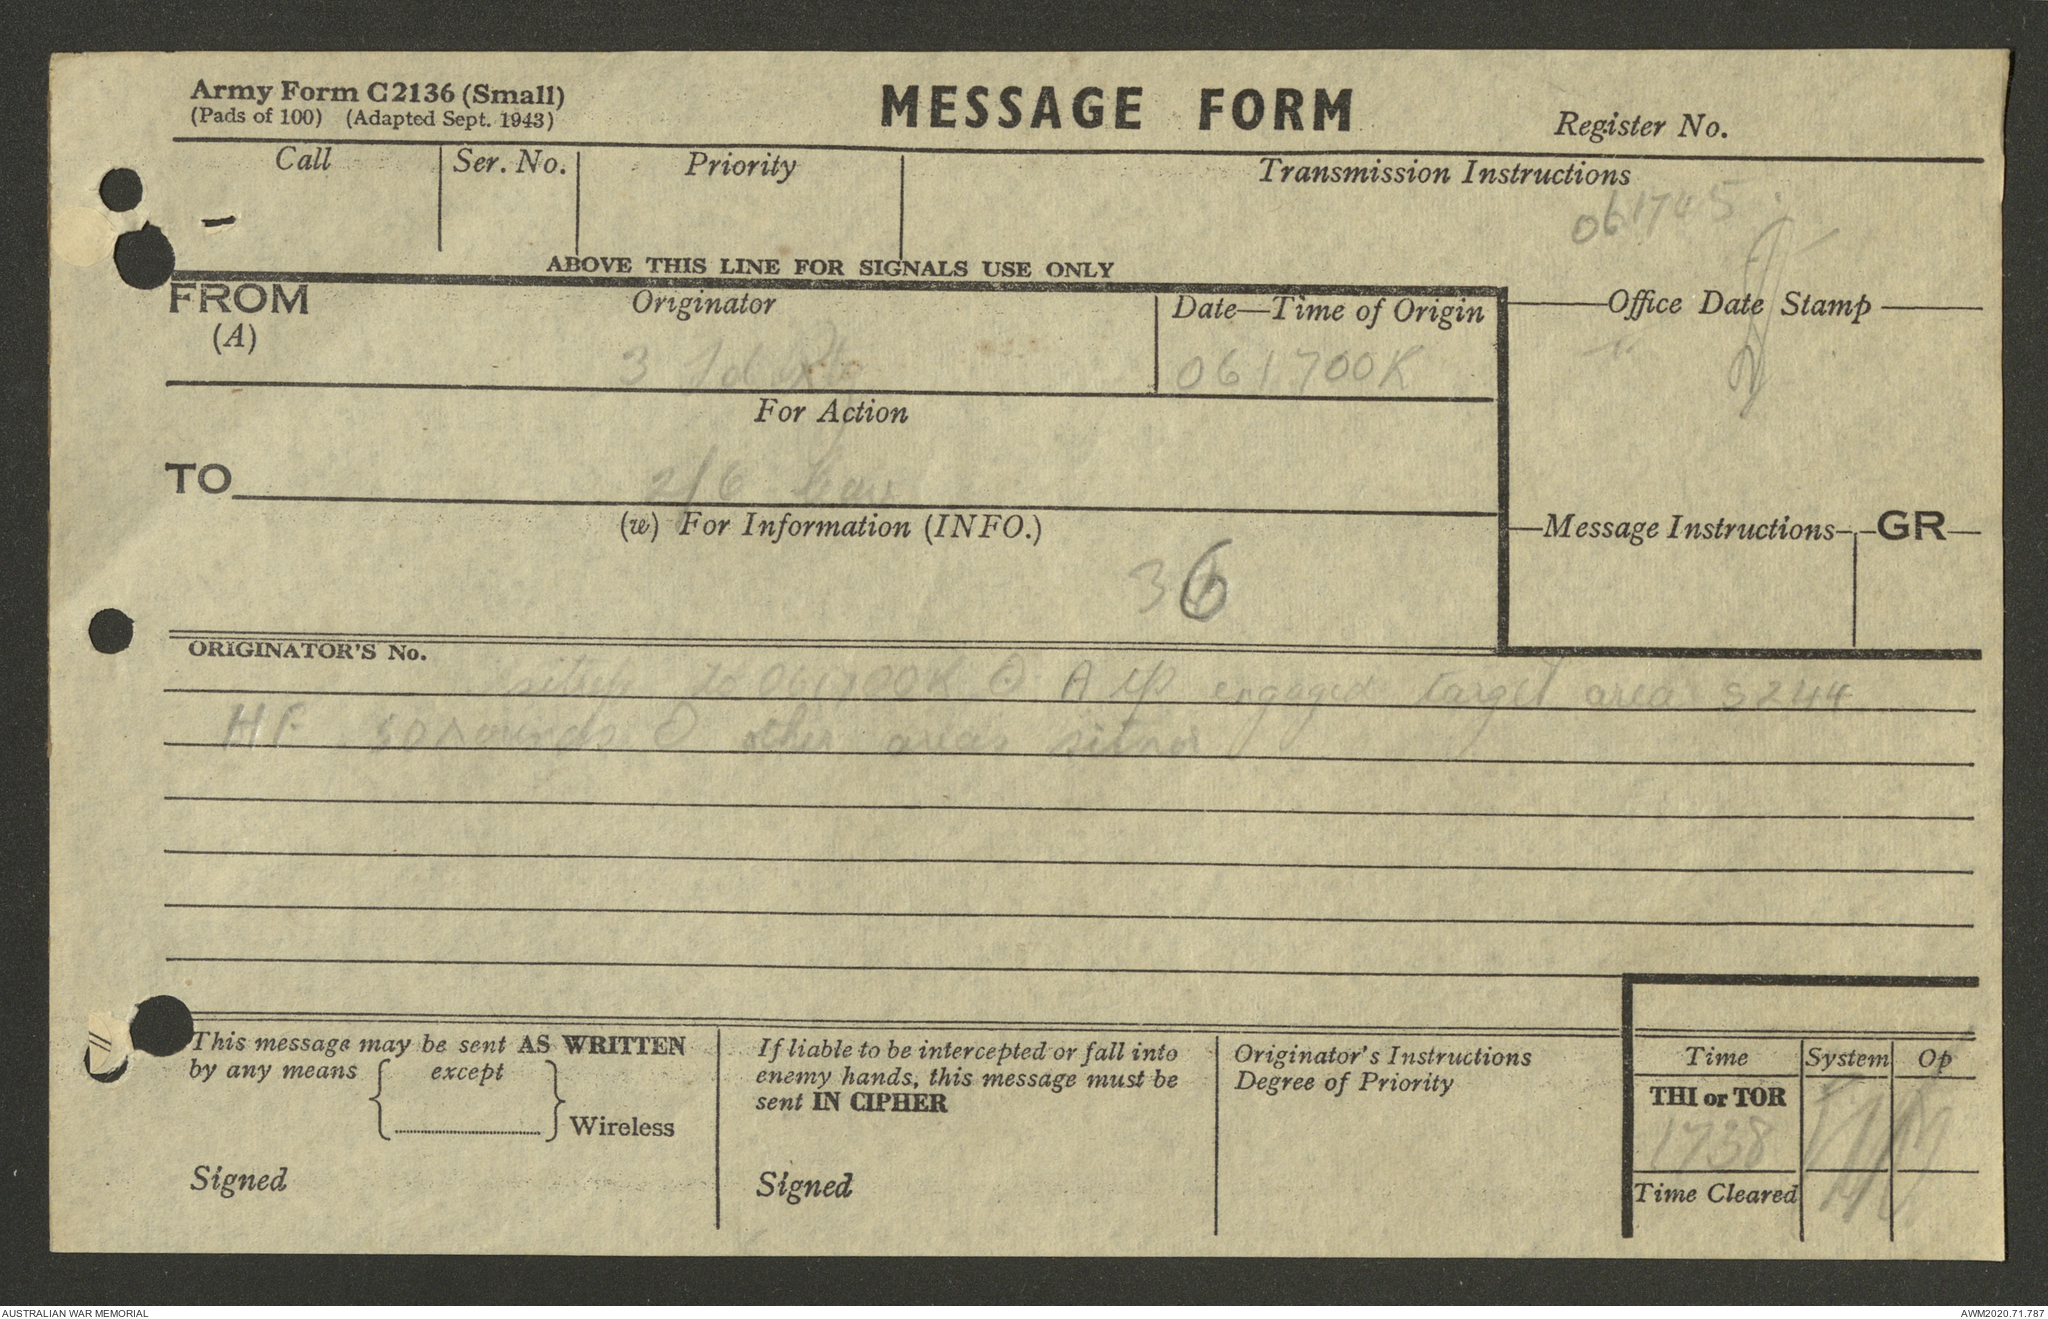 Army Form C2136 (Small)
(Pads of 100) (Adapted Sept. 1943)
MESSAGE FORM
Register No.
Call
Ser. No.
Priority
Transmission Instructions
061745
ABOVE THIS LINE FOR SIGNALS USE ONLY
FROM
(A)
Originator
3 Fd
Date—Time of Origin
061700K
Office Date Stamp
For Action
TO
2/6
(w) For Information (INFO.)
36
Message Instructions
GR
ORIGINATOR'S No.
sitrep to 061700K ⊙ A tp engaged target area S244
HF 50 rounds ⊙ other areas sitnor
This message may be sent AS WRITTEN
by any means except
Wireless
Signed
If liable to be intercepted or fall into
enemy hands, this message must be
sent IN CIPHER
Signed
Originator's Instructions
Degree of Priority
Time
System
Op
THI or TOR
1738
Time Cleared
AUSTRALIAN WAR MEMORIAL
AWM2020.71.787